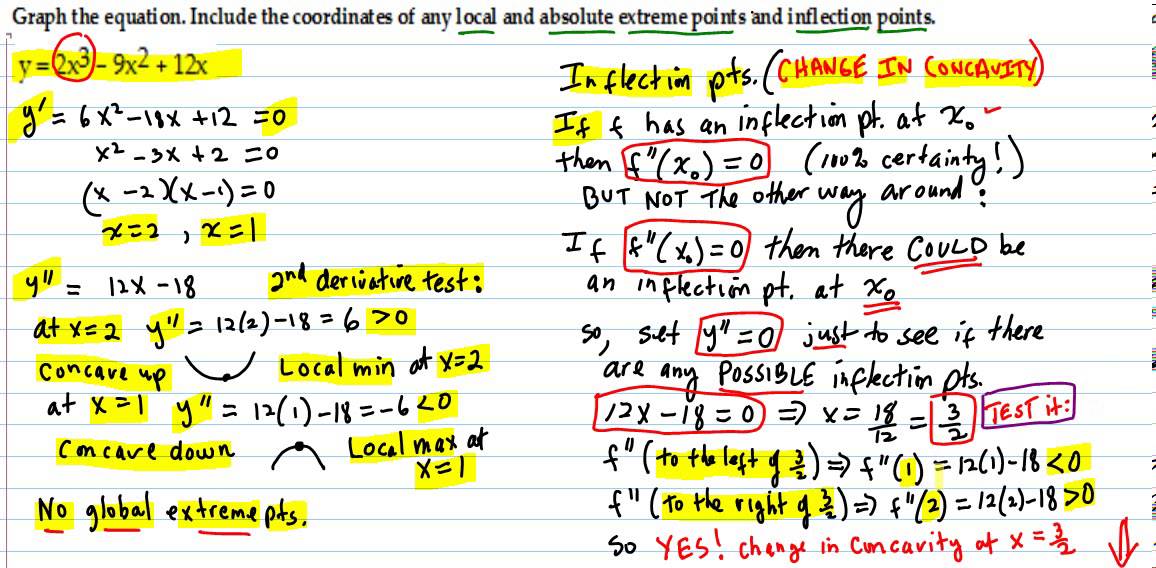 Graph the equation. Include the coordinates of any local and absolute extreme points and inflection points.
y = 2x³ – 9x² + 12x
y' = 6x² – 18x + 12 = 0
x² – 3x + 2 = 0
(x – 2)(x – 1) = 0
x = 2 , x = 1
y'' = 12x – 18 2nd derivative test:
at x = 2 y'' = 12(2) – 18 = 6 > 0
Concave up Local min at x=2
at x = 1 y'' = 12(1) – 18 = –6 < 0
Concave down Local max at x = 1
No global extreme pts.
Inflection pts. (CHANGE IN CONCAVITY)
If f has an inflection pt. at x₀
then f''(x₀) = 0 (100% certainty!)
BUT NOT The other way around:
If f''(x₀) = 0 then there COULD be
an inflection pt. at x₀
so, set y'' = 0 just to see if there
are any POSSIBLE inflection pts.
12x – 18 = 0 ⇒ x = 18/12 = 3/2 TEST it:
f'' (to the left of 3/2) ⇒ f''(1) = 12(1) – 18 < 0
f'' (to the right of 3/2) ⇒ f''(2) = 12(2) – 18 > 0
So YES! change in Concavity at x = 3/2